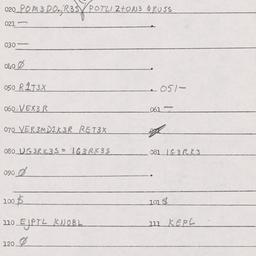 020 POM3DO, R3S POTLIZTON3 GRUSS
021 —
030 —
040 Ø
050 RIT3X . 051 —
060 VEX3R 061 —
070 VER3MDIK3R RET3X
080 UG3RK3S = IG3RK3S 081 IG3RK3
090 Ø
100 $ 101 $
110 EJPTL KNOBL 111 KEPL
120 Ø